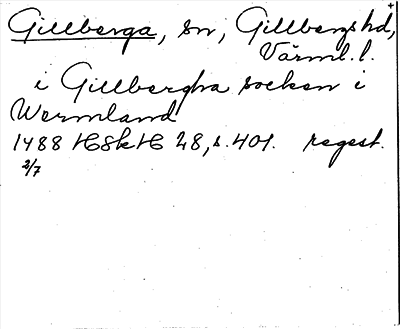 Gillberga, sn, Gillbergs hd,
Värml. l.
i Gillbergha socken i
Wermland
1488 HSkH 28, s. 401. regest.
2/7